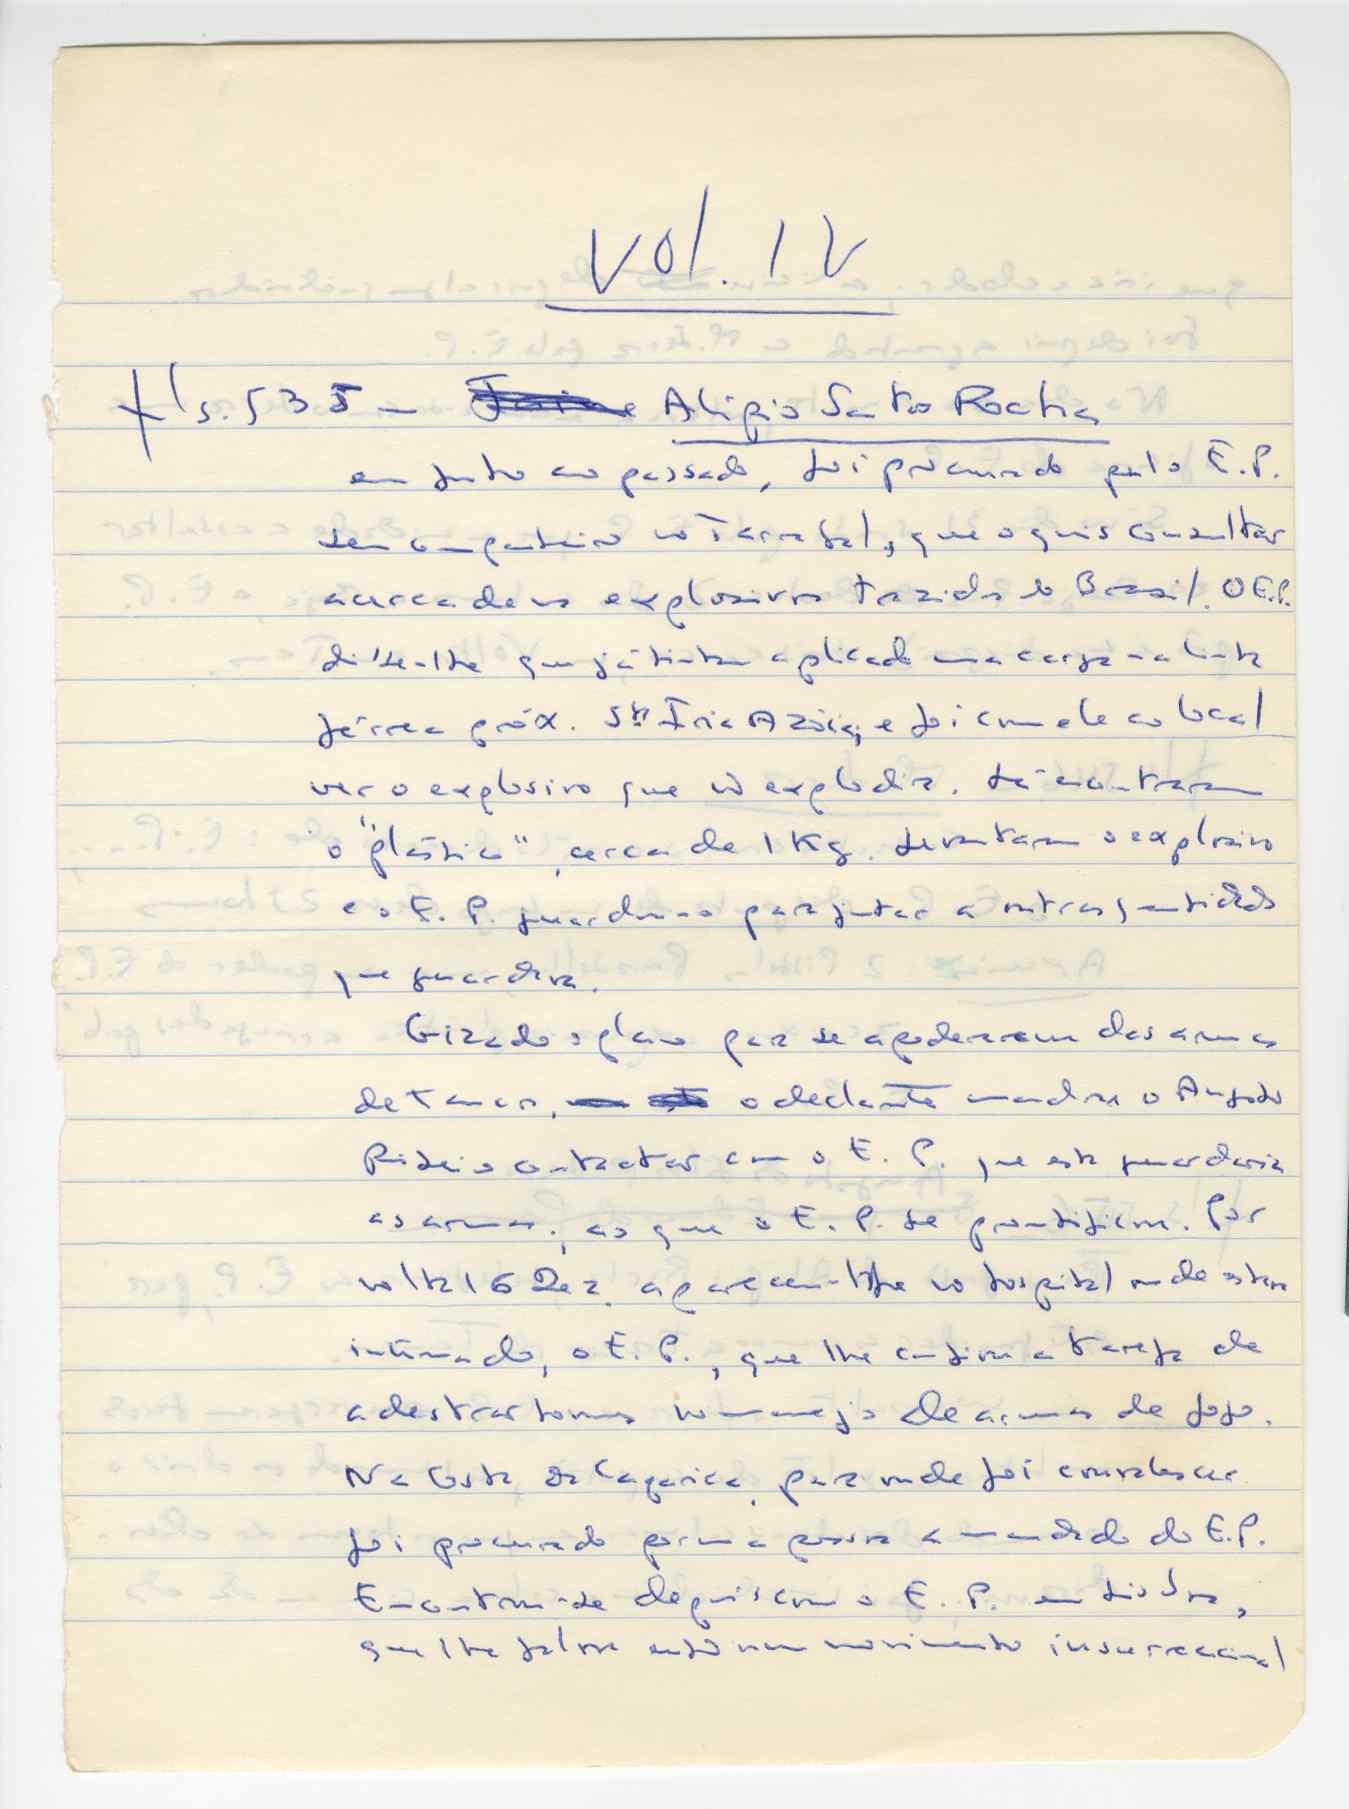 Vol. IV
fls. 535 - Alípio Santos Rocha
em Junho ano passado, foi procurado pelo E.P.
seu companheiro no Tarrafal, que o quis consultar
acerca de uns explosivos trazidos do Brasil. O E.P.
disse-lhe que já tinham aplicado uma carga na linha
férrea próx. Stª Iria Azóia, e foi com ele ao local
ver o explosivo que não explodira. Lá encontraram
o "plástico", cerca de 1 Kg. Levantaram o explosivo
e o E.P. guardou-o para juntar a outras quantidades
que guardava.
Gizado o plano para se apoderarem das armas
de Tancos, o declarante mandou o Augusto
Ribeiro contactar com o E.P. que este guardaria
as armas, ao que o E.P. se prontificou. Por
volta 16 Dez. apareceu-lhe no hospital onde estava
internado, o E.P., que lhe confiou a tarefa de
adestrar homens no manejo de armas de fogo.
Na Costa da Caparica, para onde foi convalescer
foi procurado por uma pessoa a mandado do E.P.
Encontrou-se depois com o E.P. em Lisboa,
que lhe falou então num movimento insurreccional